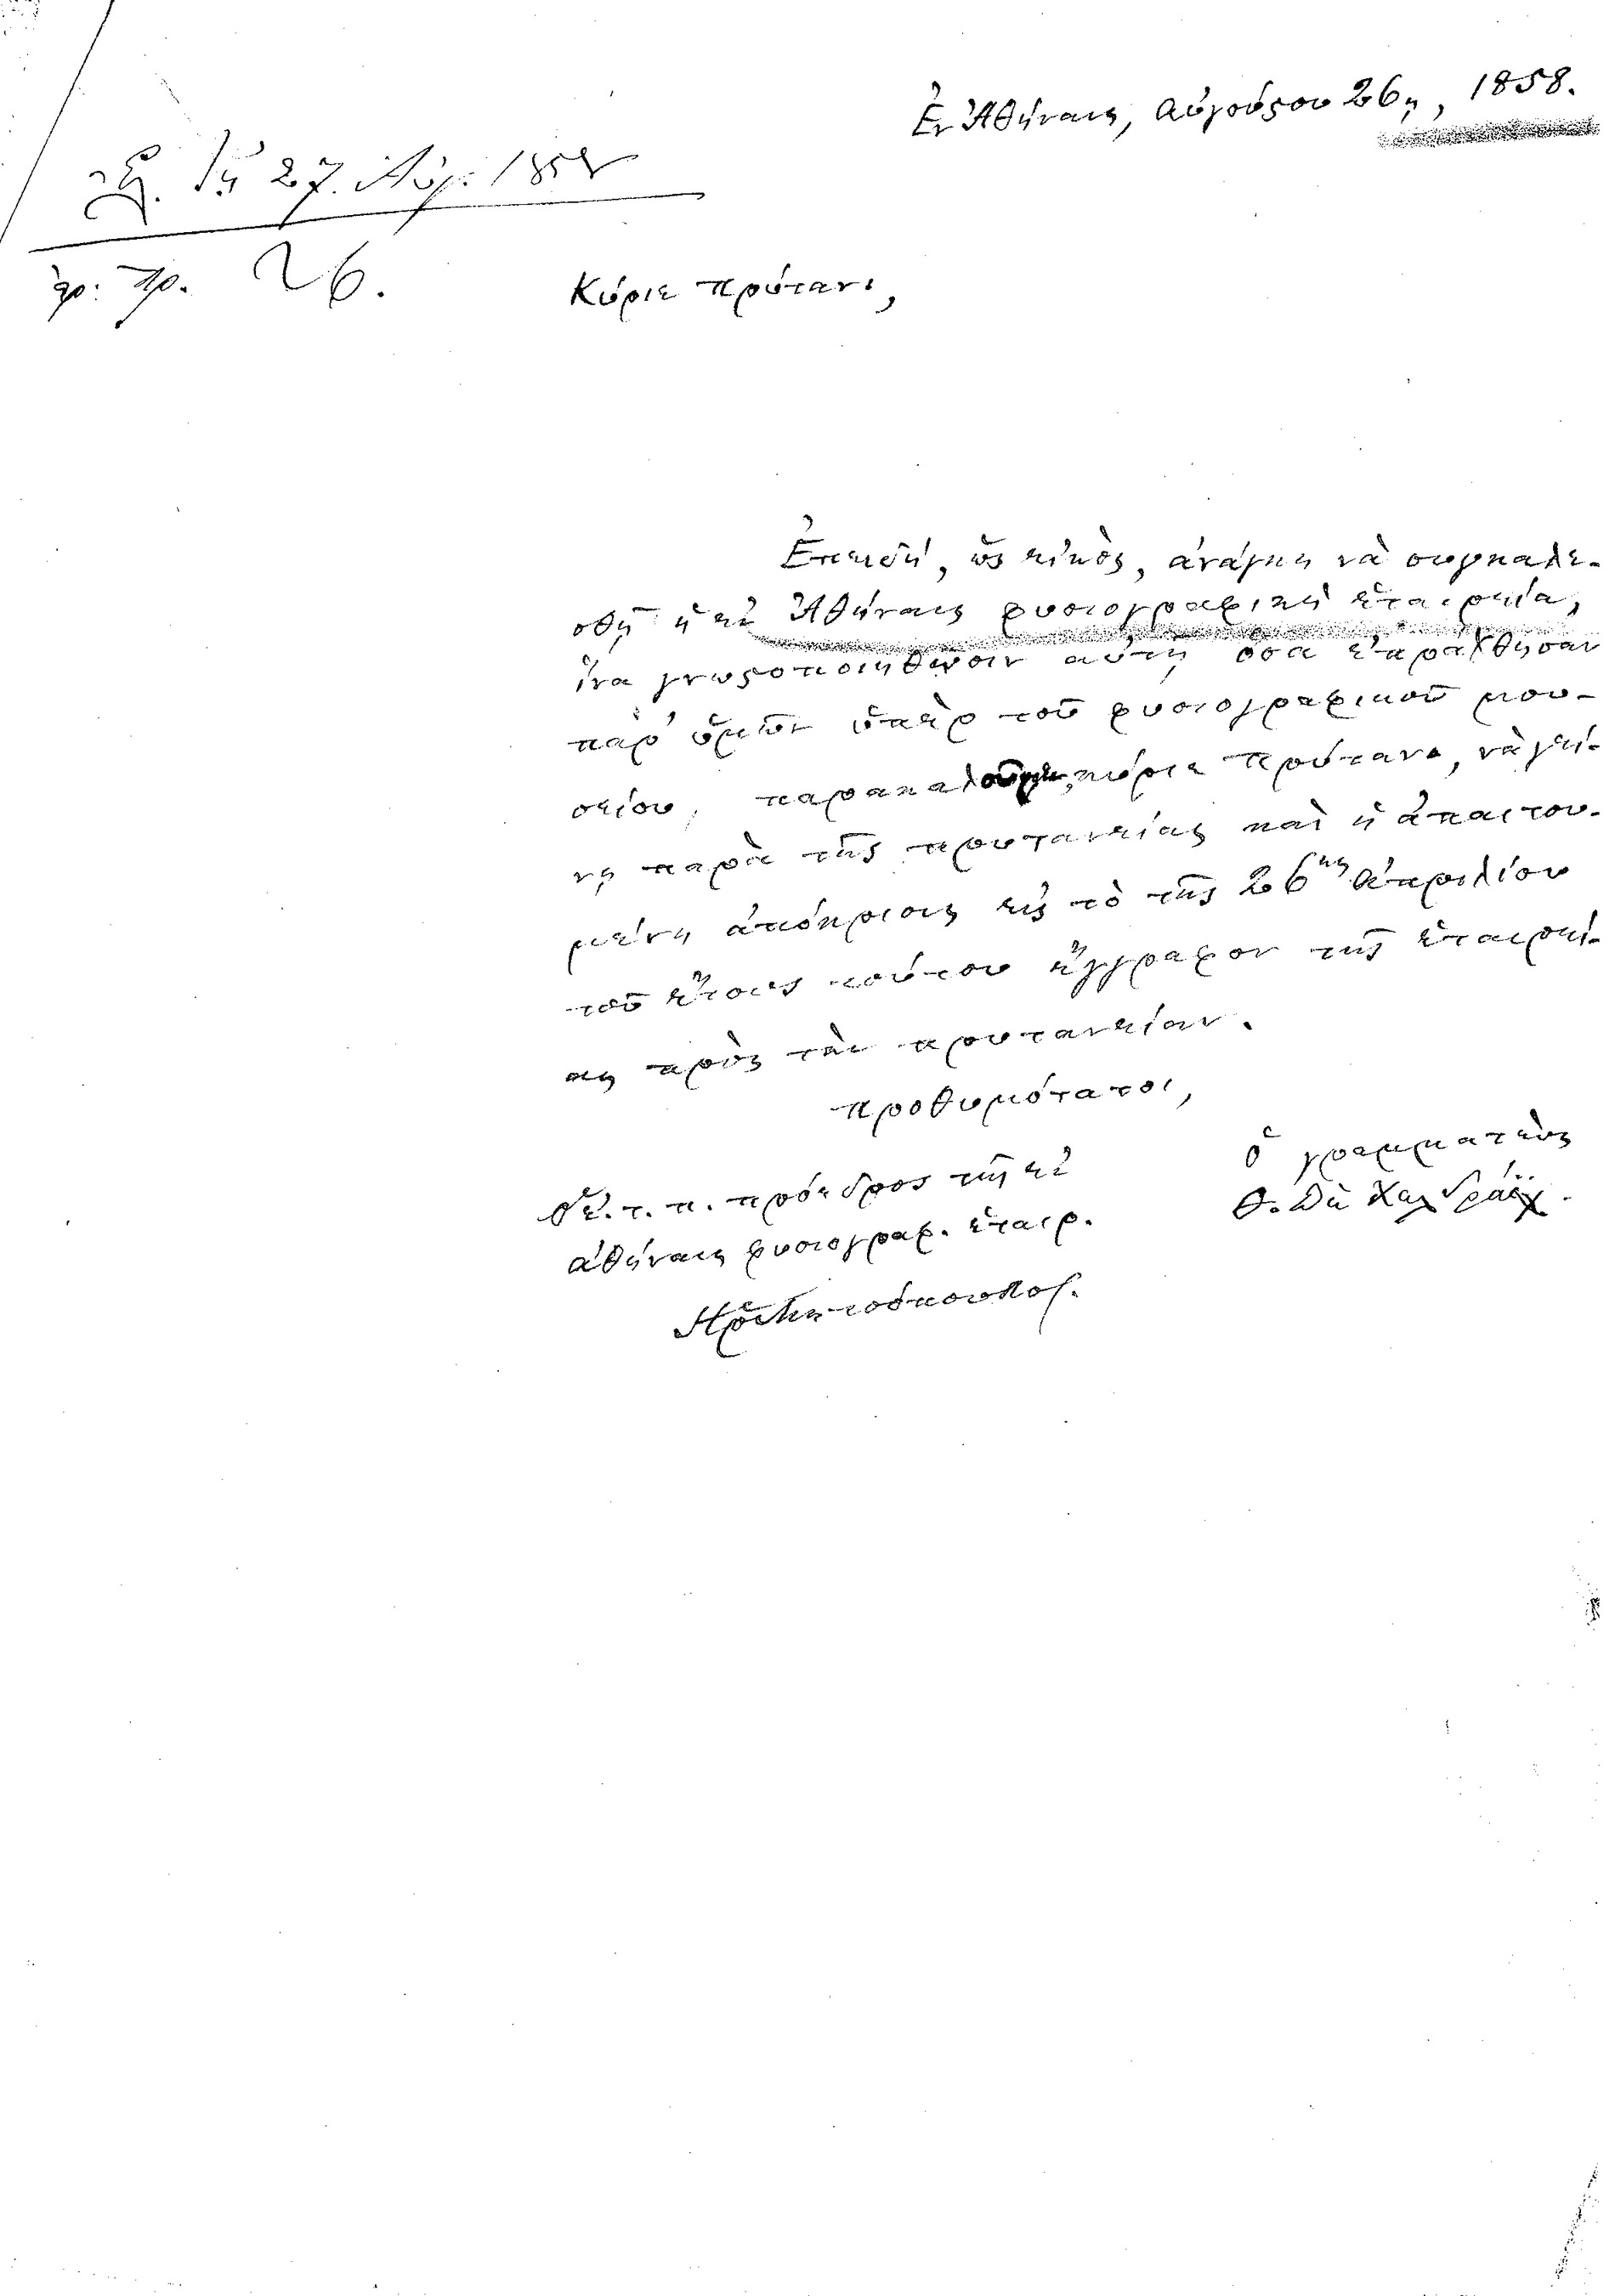 Ἐν Ἀθήναις, Αὐγούστου 26ῃ, 1858.
τῇ 27. Αὐγ. 1858
ἀρ. πρ. 26.
Κύριε Πρύτανι,
Ἐπειδή, ὡς εἰκός, ἀνάγκη νὰ συγκαλε-
σθῇ ἡ ἐν Ἀθήναις φυσιογραφικὴ ἑταιρεία,
ἵνα γνωστοποιηθῶσιν αὐτῇ ὅσα ἐπράχθησαν
παρ' ὑμῶν ὑπὲρ τοῦ φυσιογραφικοῦ μου-
σείου, παρακαλοῦμεν, κύριε Πρύτανι, νὰ γεί-
νῃ παρὰ τῆς πρυτανείας καὶ ἡ ἀπαιτου-
μένη ἀπόκρισις εἰς τὸ τῆς 26ης Ἀπριλίου
τοῦ ἔτους τούτου ἔγγραφον τῆς ἑταιρεί-
ας πρὸς τὴν πρυτανείαν.
Προθυμότατοι,
ὁ γραμματεὺς
Θ. Δὲ Χελδράϊχ.
Ὁ ἐ. τ. π. πρόεδρος τῆς ἐν
Ἀθήναις φυσιογραφ. ἑταιρ.
Ἡρ. Μητσόπουλος.